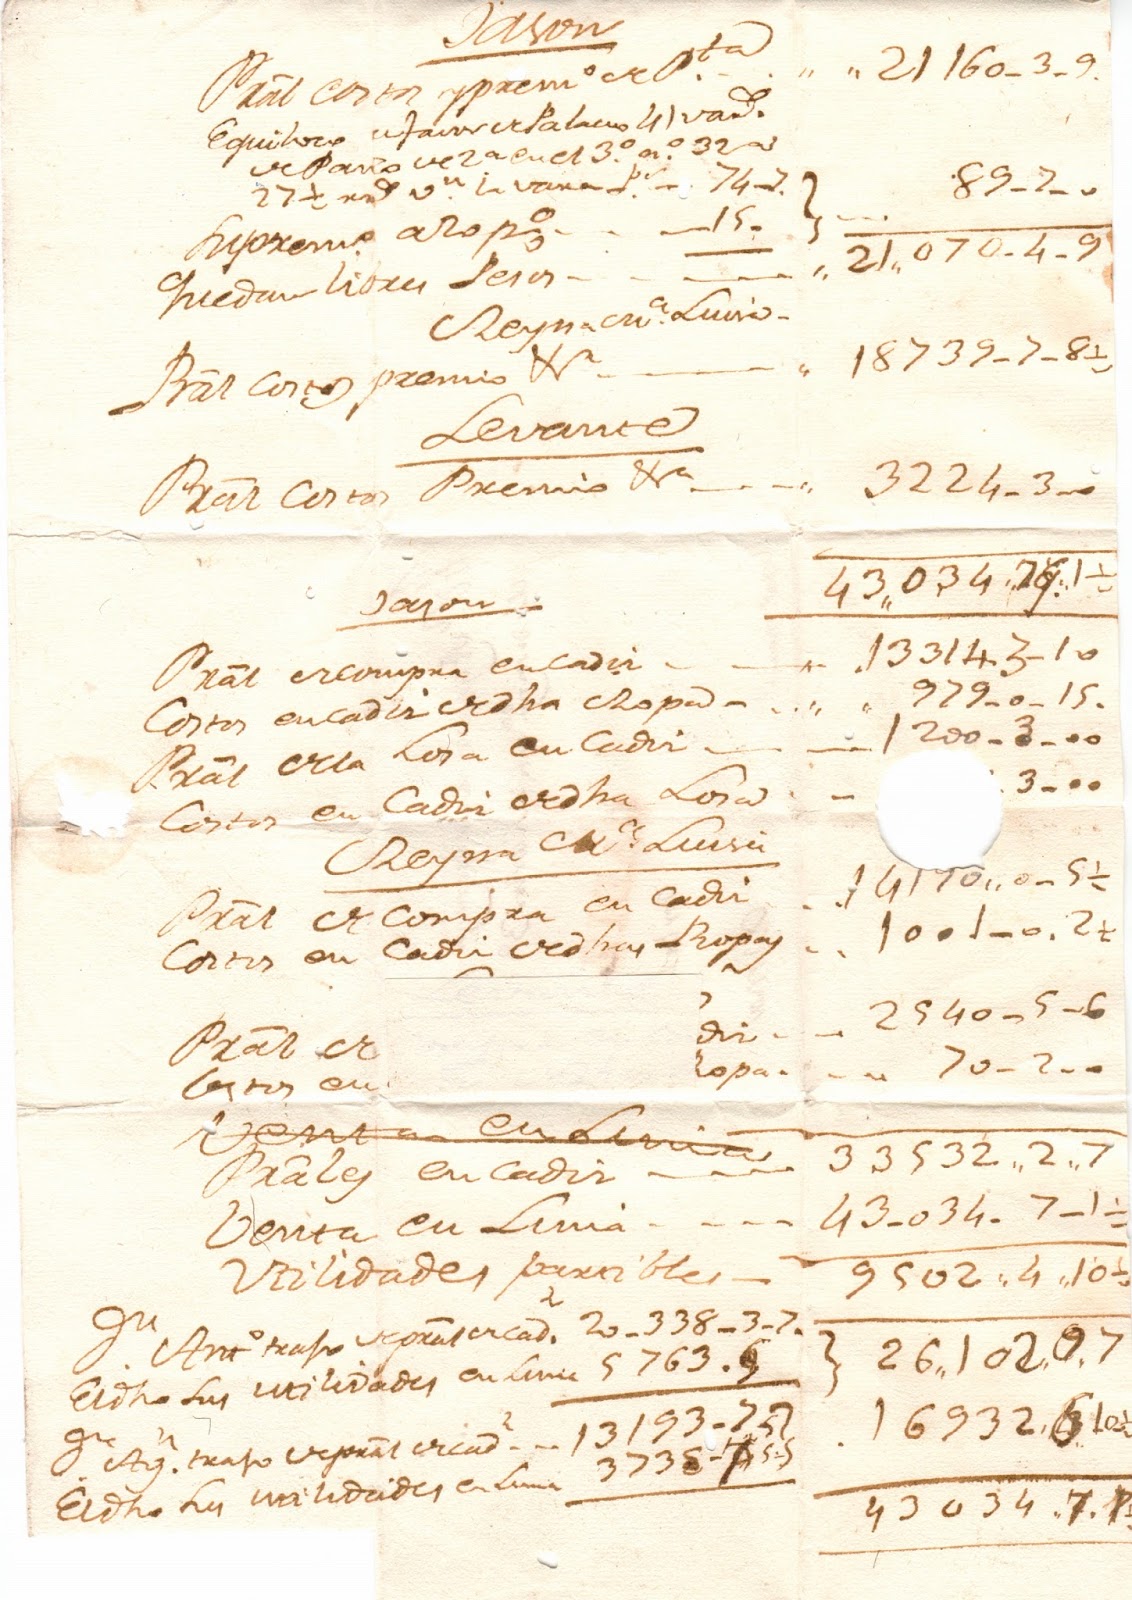 Jason
Prãl costos y prem.o de P.ta - . " " 21160-3-9.
Equiboco a favor de Palacios 41 var.s
de Paño de 2a en el 3.o n.o 32 a
27½ rr.s v.n la vara P.s - 74-7.
Supremio a 20 p% - - - 15. 89-7-0
Quedan libres Pesos - - - " 21"070-4-9
Reyna M.a Luisa-
Prãl Costos premio &a - - " 18739-7-8½
Levante
Prãl Costos Premio &a - - - " 3224-3-0
43"034"7"1½
Jason
Prãl de compra en Cadiz - - " 13314-3-10
Costos en Cadiz de dha Ropa - . " " 979-0-15.
Prãl de la Losa en Cadiz - - 1200-3-00
Costos en Cadiz de dha Losa - 3-00
Reyna M.a Luisa
Prãl de compra en Cadiz - . 14170"0-5½
Costos en Cadiz de dhas Ropas - . 1001-0.2½
Prãl de diz - - - 2540-5-6
Costos en ropa. - - " 70-2-0
Venta en Lima
Prãles en Cadiz - - - 33532"2"7
Venta en Lima - - - - 43-034-7-1½
Utilidades partibles - 9502"4"10½
Ant.o traspo de prãl de Cad.z 20-338-3-7. 26"102"0"7
El dho sus utilidades en Lima 5763.5
Ag.n traspo de prãl de Cad.z - - 13193-7- 16932"6"10½
El dho sus utilidades en Lima
43034"7"1½